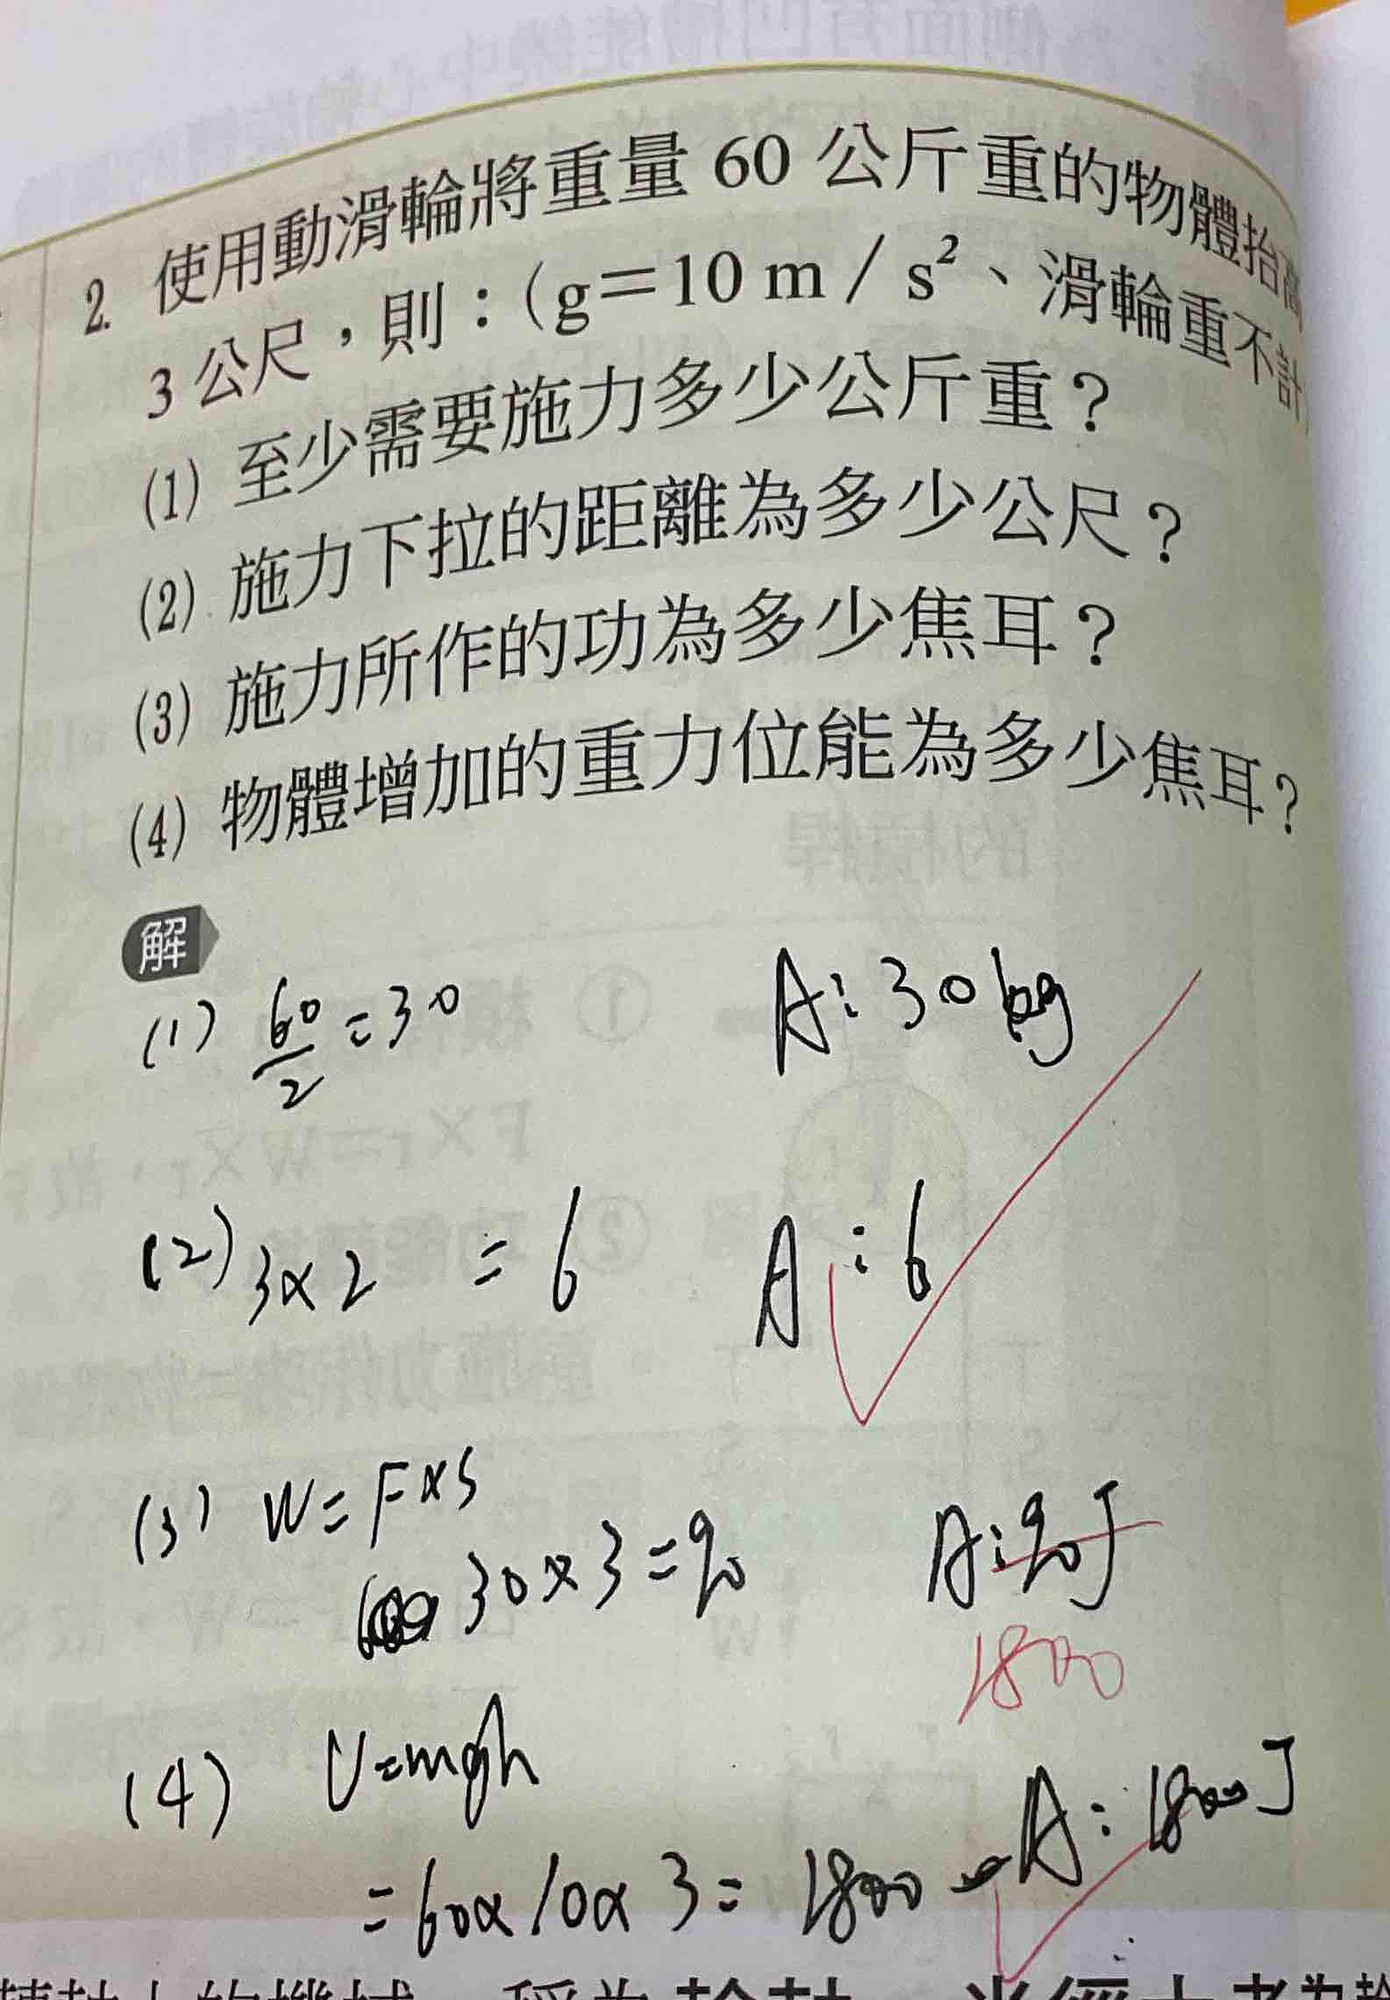 2. 使用動滑輪將重量 60 公斤重的物體抬高
3 公尺，則：(g＝10 m／s²、滑輪重不計
(1) 至少需要施力多少公斤重？
(2) 施力下拉的距離為多少公尺？
(3) 施力所作的功為多少焦耳？
(4) 物體增加的重力位能為多少焦耳？
解
(1) 60/2 = 30 A: 30kg
(2) 3×2 = 6 A: 6
(3) W = F×S
30×3 = 90 A: 90J
1800
(4) U=mgh
= 60×10×3 = 1800 A: 1800J